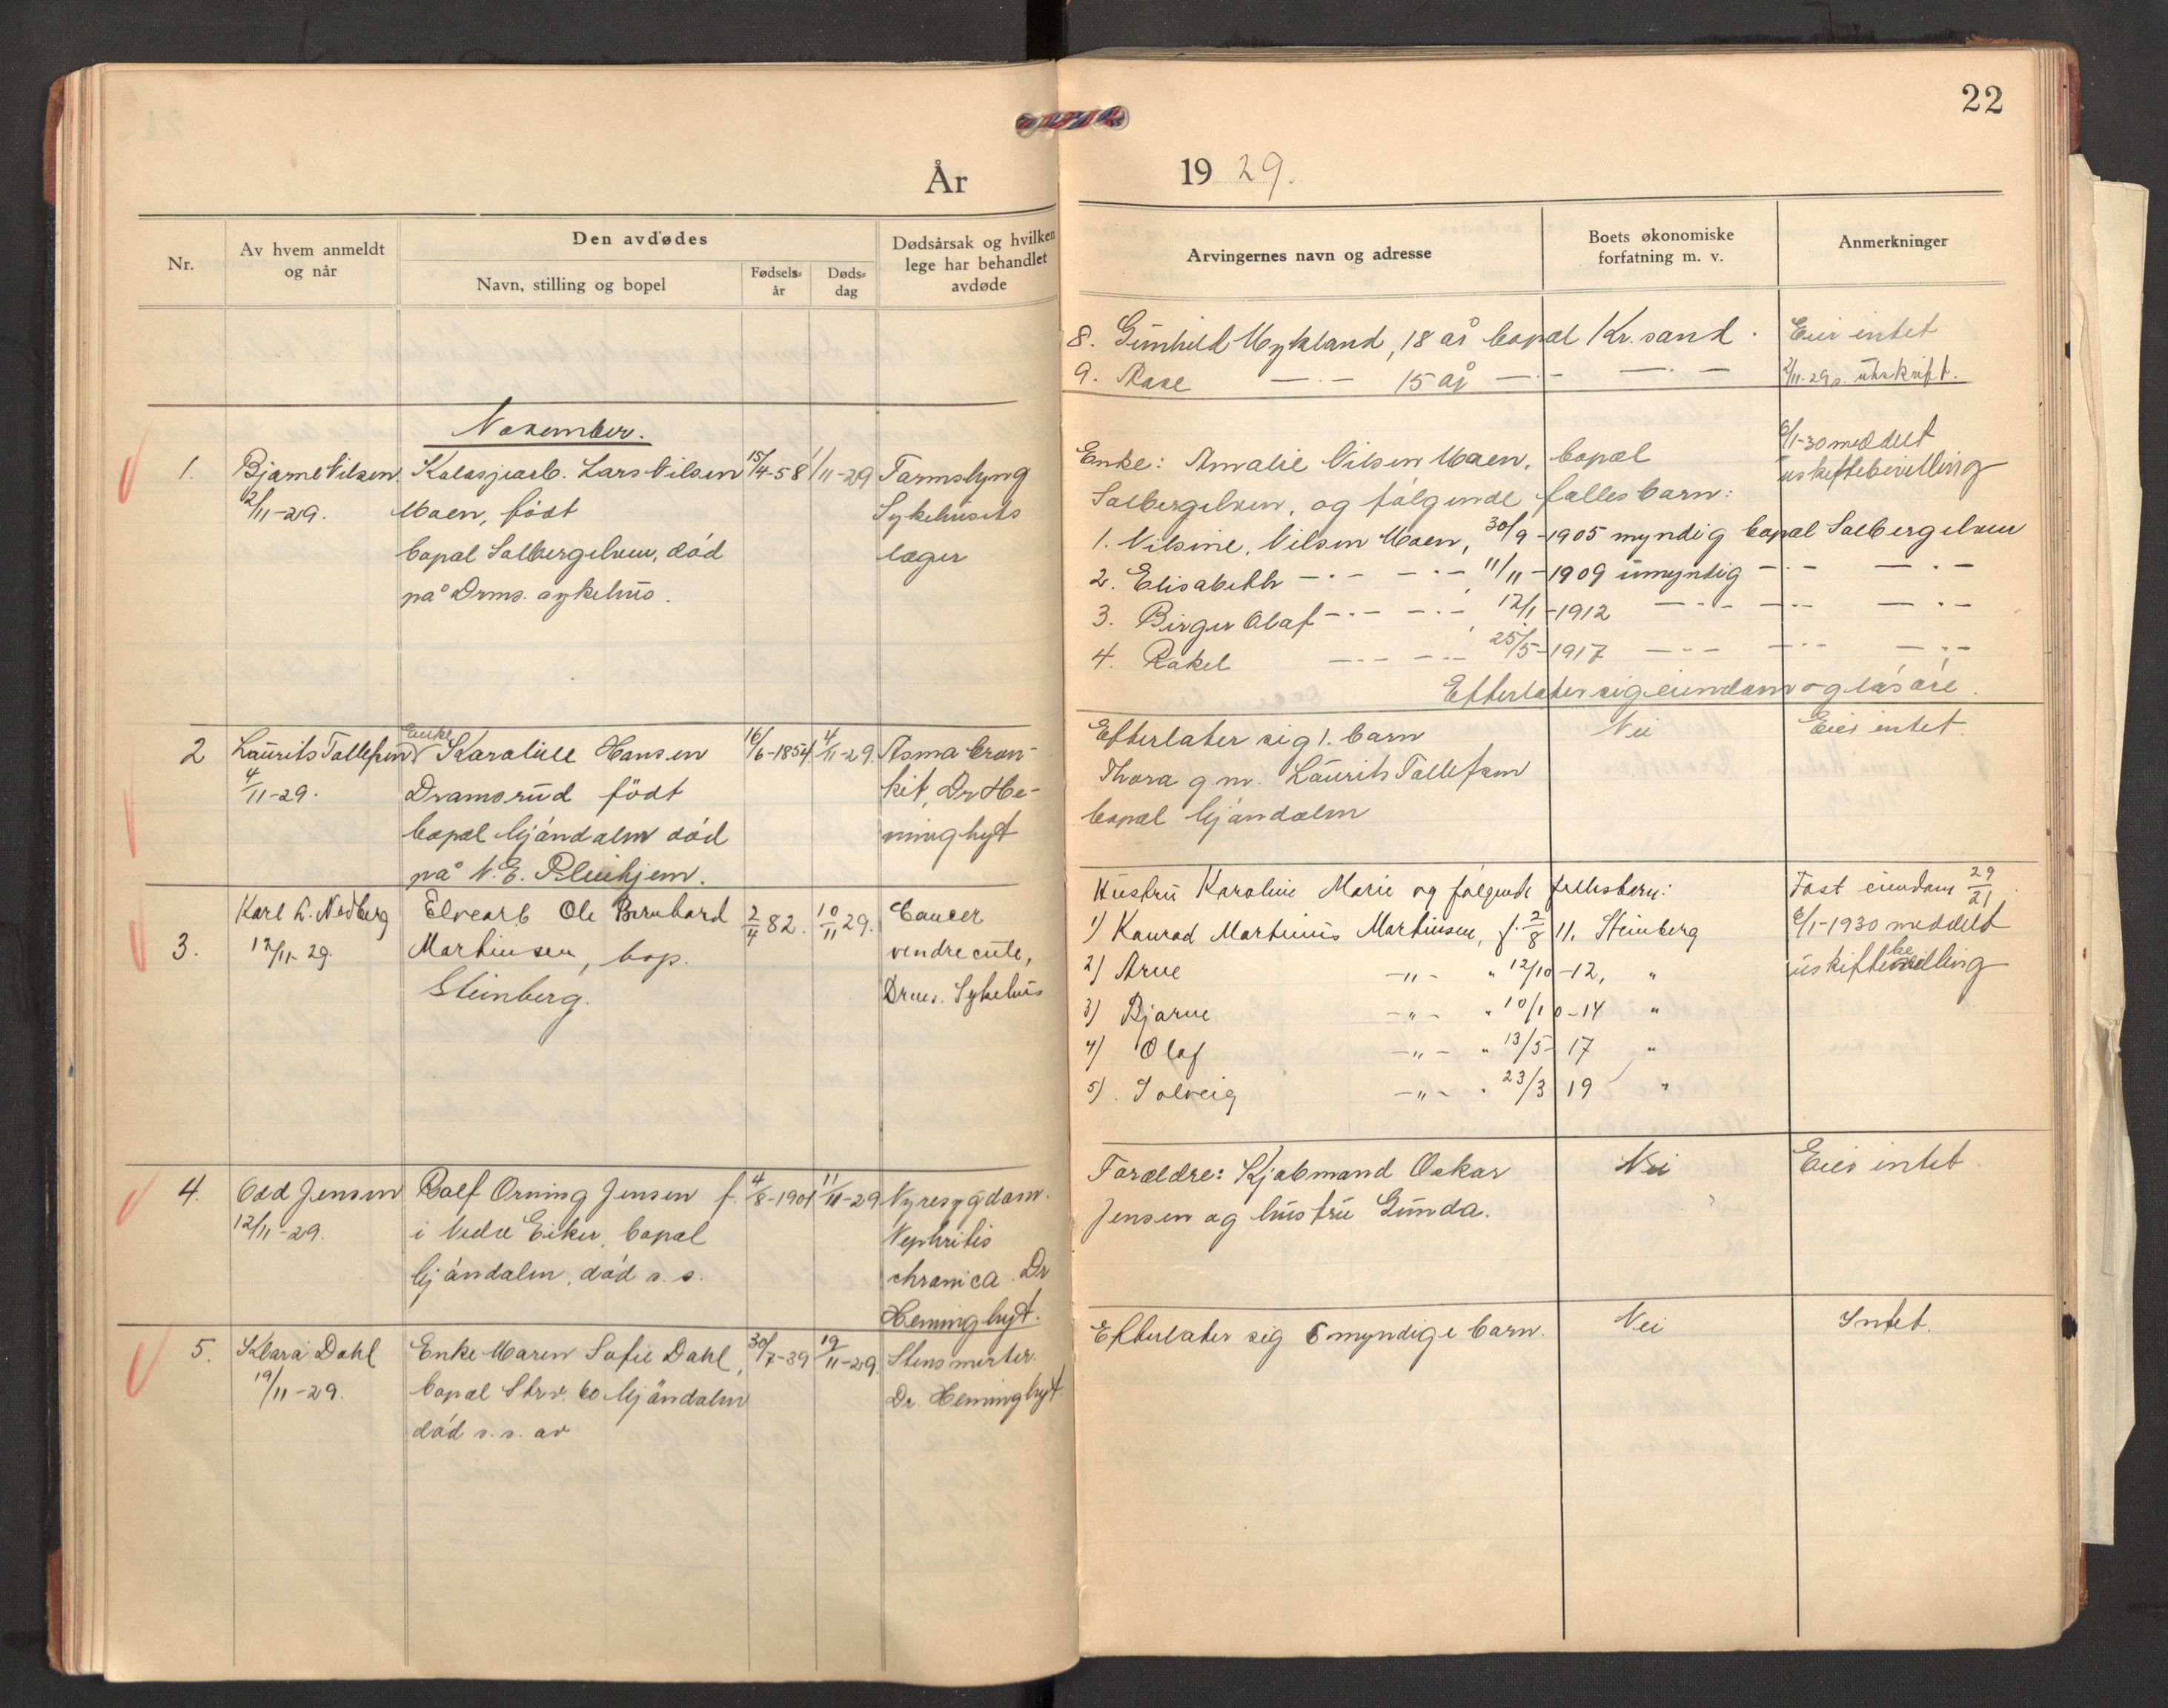 22
År 19 29.
Nr.
Av hvem anmeldt
og når
Den avdødes
Navn, stilling og bopel
Fødsels-
år
Døds-
dag
Dødsårsak og hvilken
lege har behandlet
avdøde
Arvingernes navn og adresse
Boets økonomiske
forfatning m. v.
Anmerkninger
8. Gunhild Mykland, 18 år bopæl Kr. sand.
Eier intet
9. Aase —·— 15 år —·— —·—
2/11-29 s. utskrift.
November.
1.
Bjarne Nilsen.
2/11-29.
Kalasjearb. Lars Nilsen
Moen, født
bopæl Solbergelven, død
på Drms. sykehus.
15/4-58
1/11-29
Tarmslyng
Sykehusets
læger
Enke: Amalie Nilsen Moen, bopæl
Solbergelven, og følgende fælles barn:
1. Nilsine, Nilsen Moen, 30/9-1905 myndig bopæl Solbergelven
2. Elisabeth —·— —·— 11/11-1909 umyndig —·— —·—
3. Birger Olaf —·— —·— 12/1-1912 —·— —·— —·—
4. Rakel —·— —·— 25/5-1917 —·— —·— —·—
Efterlater sig eiendom og løsøre.
6/1-30 meddelt
uskiftebevilling
2
Laurits Tollefsen
4/11-29.
Enke
Karoline Hansen
Dramsrud født
bopæl Mjøndalen død
på N. E. Pleiehjem.
16/6-1854
4/11-29.
Asma bron-
kit, Dr He-
minghyt
Efterlater sig 1. barn
Thora g. m. Laurits Tollefsen
bopæl Mjøndalen
Nei
Eier intet.
3.
Karl L. Nedberg
12/11-29.
Elvearb Ole Bernhard
Martinsen, bop.
Steinberg.
2/4 82.
10/11 29.
Cancer
vendrecute,
Drms. Sykehus
Hustru Karoline Marie og følgende fællesbarn:
1) Konrad Martinius Martinsen, f. 2/8 11. Steinberg
2) Arne —"— " 12/10-12, "
3) Bjarne —"— " 10/10-14 "
4) Olaf —"— " 13/5-17 "
5). Solveig —"— " 23/3 19 "
Fast eiendom 29/21.
6/1-1930 meddelt
uskiftebevilling
4.
Odd Jensen
12/11-29.
Rolf Orning Jensen f.
i Nedre Eiker, bopæl
Mjøndalen, død s. s.
4/8-1901
11/11-29
Nyresygdom.
Nephritis
chronica. Dr
Heminghyt.
Forældre: Kjøbmand Oskar
Jensen og hustru Gunda.
Nei
Eier intet.
5.
Klara Dahl
19/11-29.
Enke Maren Sofie Dahl,
bopæl Strv. 60 Mjøndalen
død s. s. av
30/7-39
19/11-29.
Stensmerter.
Dr. Heminghyt.
Efterlater sig 6 myndige barn.
Nei
Intet.